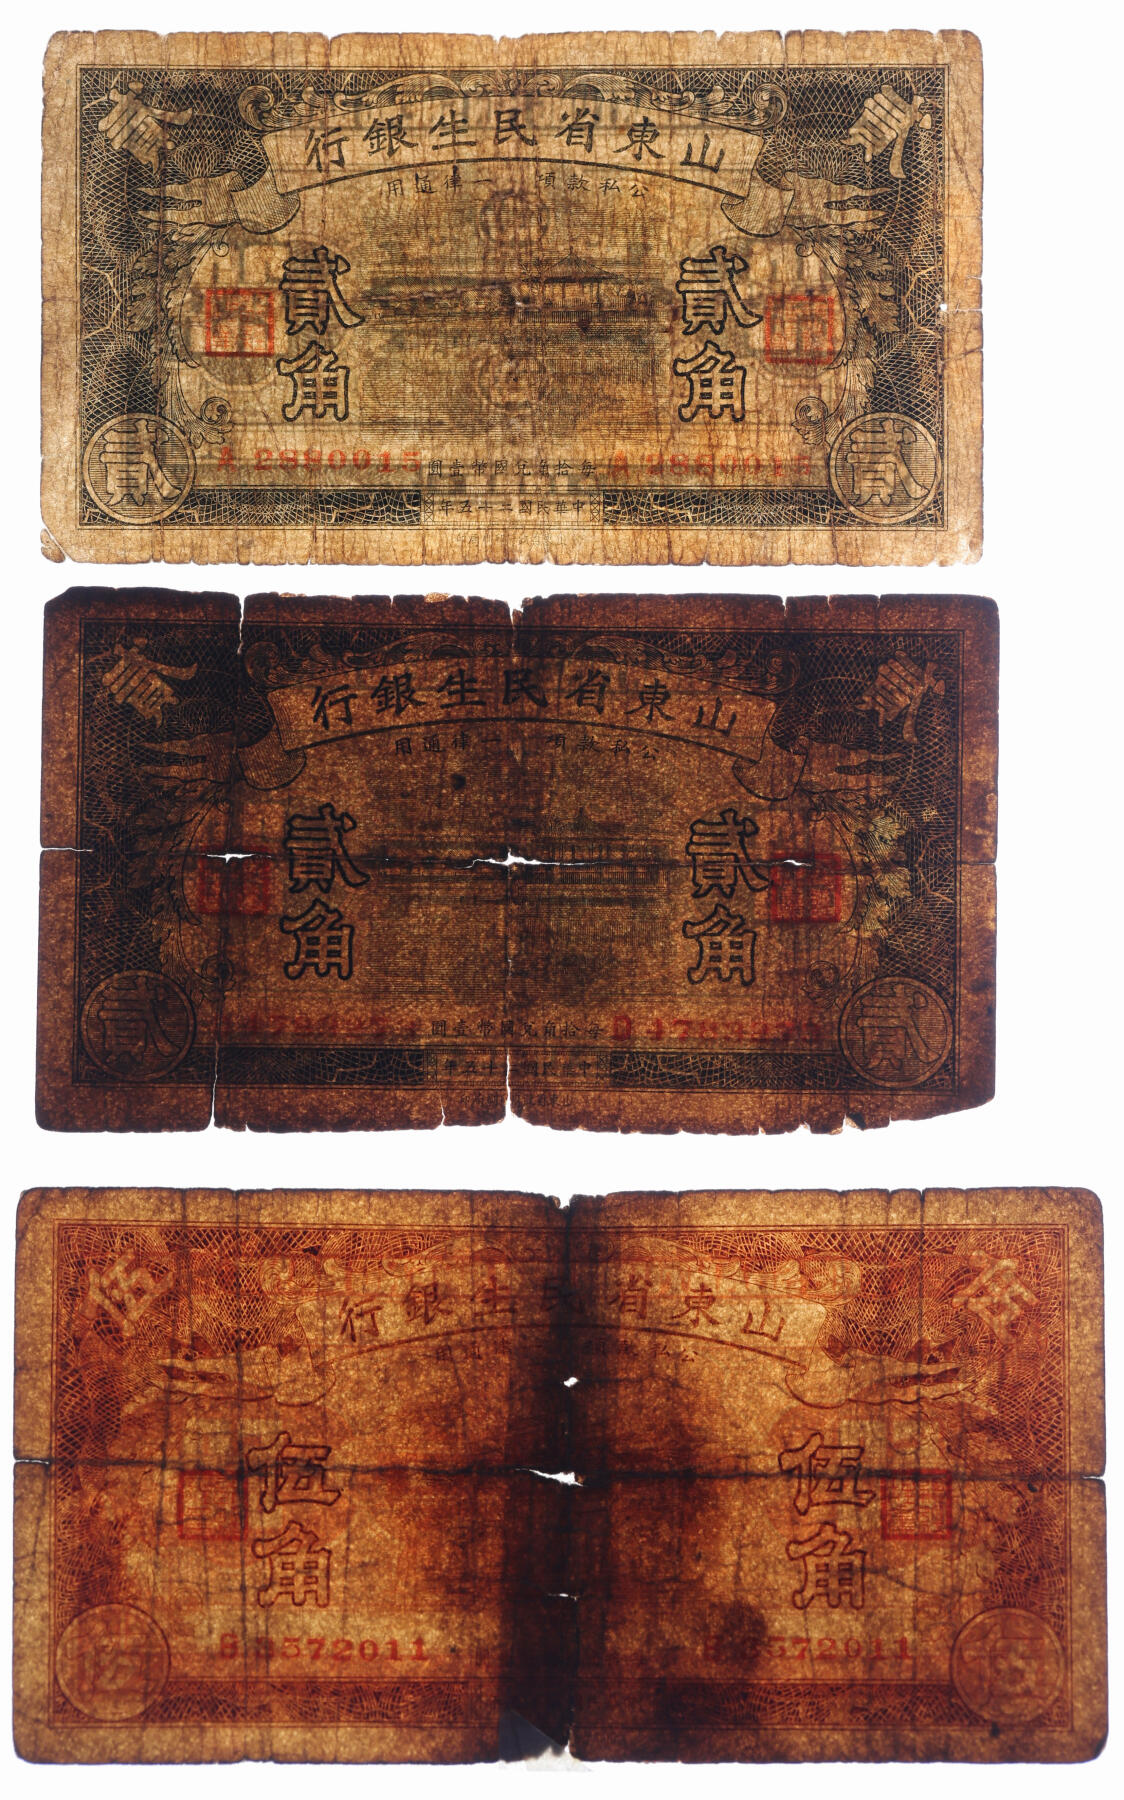 貳 貳
山東省民生銀行
公私款項 一律通用
貳角 貳角
貳 A 2880015 每拾角兌國幣壹圓 A 2880015 貳
中華民國二十五年
貳 貳
山東省民生銀行
公私款項 一律通用
貳角 貳角
貳 每拾角兌國幣壹圓 貳
中華民國二十五年
伍 伍
山東省民生銀行
公私款 通用
伍角 伍角
伍 B 3572011 3572011 伍